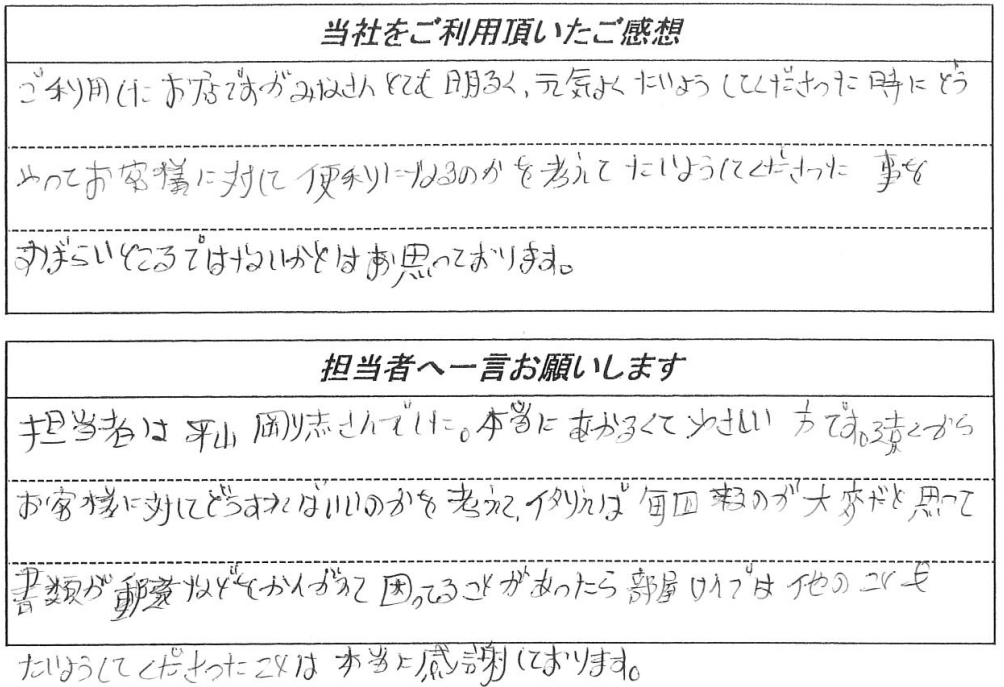 当社をご利用頂いたご感想
ご利用した お店ですが みなさん とても 明るく、元気よく たいようしてくださった 時に どう
やって お客様に対して 便利になるのかを 考えて たいようしてくださった 事を
すばらいところではないかとはお思っております。
担当者へ一言お願いします
担当者は 平山 剛志さんでした。本当に あかるくて やさしい 方です。
お客様に対してどうすればいいのかを 考えて、例えば 毎回 来るのが 大変だと思って
書類が 郵送などを かんがえて 困ってることがあったら 部屋 では 他の ことも
たいようしてくださったことは 本当に感謝しております。